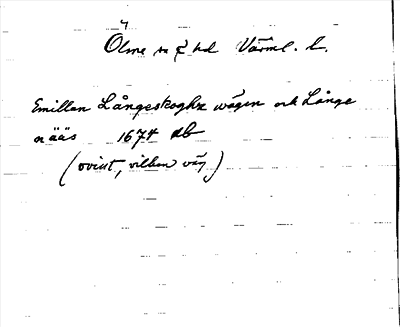 Ölme sn o hd Värml. l.
Emillan Långeskoghz wägen och Långe
nääs 1674 db
(ovisst, vilken väg)